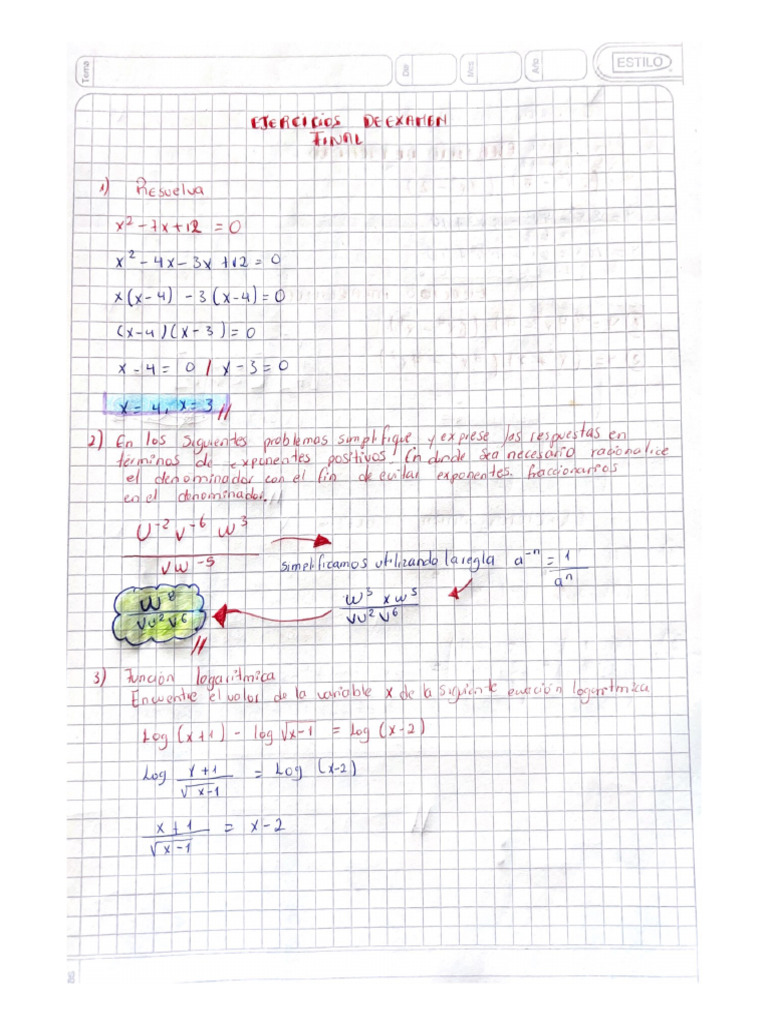 Tema
Día
Mes
Año
ESTILO
EJERCICIOS DE EXAMEN
FINAL
1) Resuelva
x² - 7x + 12 = 0
x² - 4x - 3x + 12 = 0
x(x-4) - 3(x-4) = 0
(x-4)(x-3) = 0
x - 4 = 0 / x - 3 = 0
x = 4, x = 3 //
2) En los siguientes problemas simplifique y exprese las respuestas en
términos de exponentes positivos. En donde sea necesario racionalice
el denominador con el fin de evitar exponentes fraccionarios
en el denominador. //
U⁻² V⁻⁶ W³
VW⁻⁵
simplificamos utilizando la regla a⁻ⁿ = 1/aⁿ
W³ x W⁵
VU²V⁶
W⁸
VU²V⁶ //
3) Función logarítmica
Encuentre el valor de la variable x de la siguiente ecuación logarítmica
Log (x+1) - log √x-1 = Log (x-2)
Log x+1/√x-1 = Log (x-2)
x+1/√x-1 = x-2